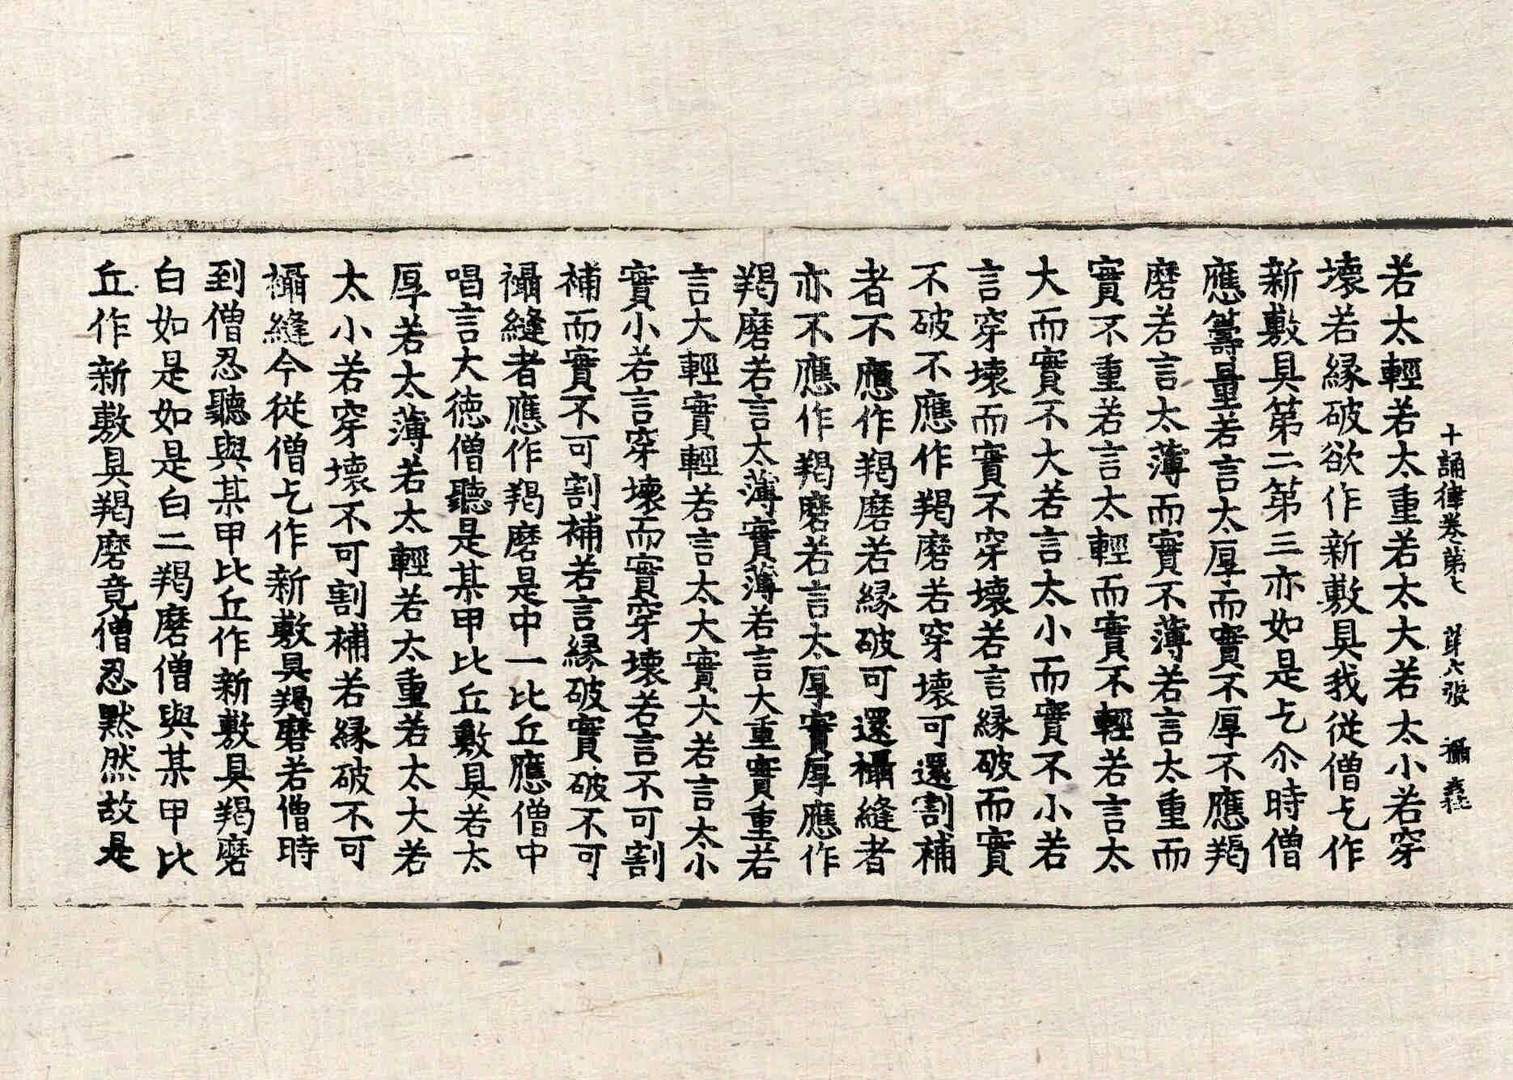 十誦律卷第七　第六張　攝
若太輕若太重若太大若太小若穿
壞若縁破欲作新敷具我從僧乞作
新敷具第二第三亦如是乞尒時僧
應籌量若言太厚而實不厚不應羯
磨若言太薄而實不薄若言太重而
實不重若言太輕而實不輕若言太
大而實不大若言太小而實不小若
言穿壞而實不穿壞若言縁破而實
不破不應作羯磨若穿壞可還割補
者不應作羯磨若縁破可還襵縫者
亦不應作羯磨若言太厚實厚應作
羯磨若言太薄實薄若言大重實重若
言大輕實輕若言太大實大若言太小
實小若言穿壞而實穿壞若言不可割
補而實不可割補若言縁破實破不可
襵縫者應作羯磨是中一比丘應僧中
唱言大徳僧聽是某甲比丘敷具若太
厚若太薄若太輕若太重若太大若
太小若穿壞不可割補若縁破不可
襵縫今從僧乞作新敷具羯磨若僧時
到僧忍聽與某甲比丘作新敷具羯磨
白如是如是白二羯磨僧與某甲比
丘作新敷具羯磨竟僧忍黙然故是